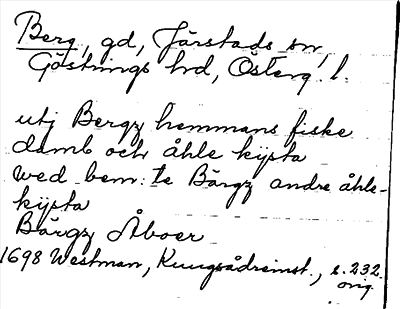 Berg, gd, Järstads sn,
Göstrings hd, Österg. l.
utj Bergz hemmans fiske
damb och åhle kysta
wed bem:te Bärgz andre åhle-
kysta
Bärgz Åboer
1698 Westman, Kungsådreinst., s. 232.
orig.